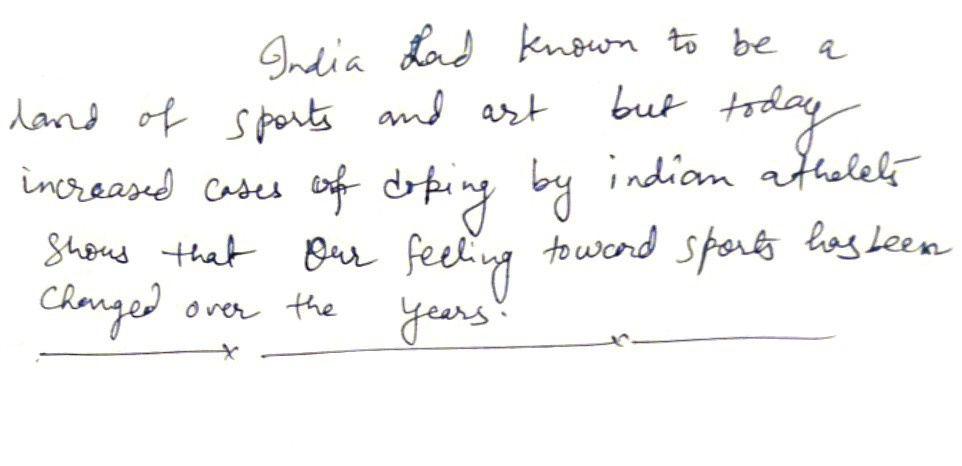 India had known to be a
land of sports and art but today
increased cases of doping by indian athelets
shows that Our feeling toward sports has been
Changed over the years.